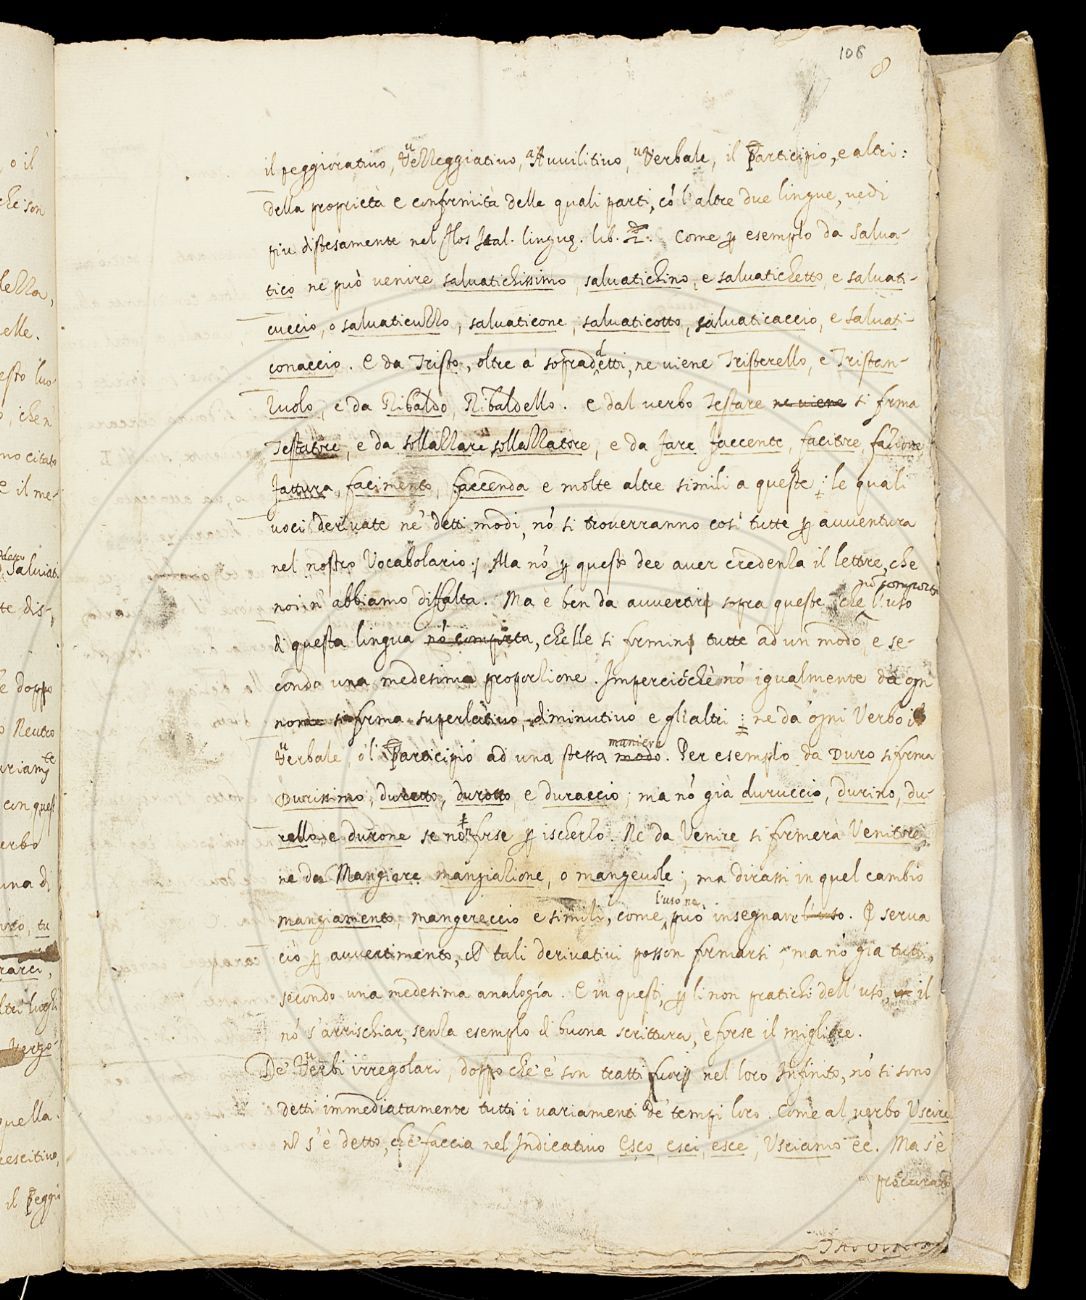 106
8
il peggiorativo, Vezzeggiativo, Avvilitivo, Verbale, il Participio, e altri:
della proprietà e confrmità delle quali parti, cō l'altre due lingue, vedi
più distesamente nel flos Ital. lingug. lib. 2. Come ꝑ esemplo da Salva-
tico ne può venire salvatichissimo, salvatichino, e salvatichetto, e salvati-
cuccio, o salvaticuzzo, salvaticone, salvaticotto, salvaticaccio, e Salvati-
conaccio. E da Tristo, oltre a' sopradetti, ne viene Tristerello, e Tristan-
zuolo, e da Ribaldo, Ribaldello. E dal verbo Testare ne viene si frma
Testatore, e da sollazzare sollazzatore, e da fare facente, facitre, fazione
fattura, facimento, faccenda e molte altre simili a queste: le quali
voci derivate ne' detti modi, nō si troverranno così tutte ꝑ avventura
nel nostro Vocabolario: Ma nō ꝑ questo dee aver credenza il lettre, che
nō comporta
noi n' abbiamo diffalta. Ma è ben da avvertire sopra queste, che l'uso
di questa lingua nō comporta, ch'elle si frmino tutte ad un modo, e se-
conda una medesima proporzione. Imperciochè nō igualmente da ogn
nome si frma superlativo, diminutivo e gl'altri: ne da ogni Verbo il
Verbale o'l Participio ad una stessa modo maniera. Per esemplo da Duro si frma
Durissimo, duretto, durotto e duraccio; ma nō già duruccio, durino, du-
rello, e durone se nō frse ꝑ ischerzo. Ne da Venire si frmerà Venitore
ne da Mangiare mangiazione, o mangevole; ma dirassi in quel cambio
mangiamento, mangereccio e simili, come l'uso ne può insegnare l'uso. E serva
ciò ꝑ avvertimento, che tali derivativi posson frmarsi, ma nō già tutti,
secondo una medesima analogía. E in questi, ꝑ li non pratichi dell' uso, il
nō s'arrischiar, senza esemplo di buona scrittura, è forse il migliore.
De' Verbi irregolari, doppo che e' son tratti fuori nel loro Infinito, nō si sono
detti immediatamente tutti i variamenti de' tempi loro. Come al verbo Uscire
nō s'è detto, che faccia nel Indicativo Esco, esci, esce, Usciamo ec. Ma s'è
proccurato